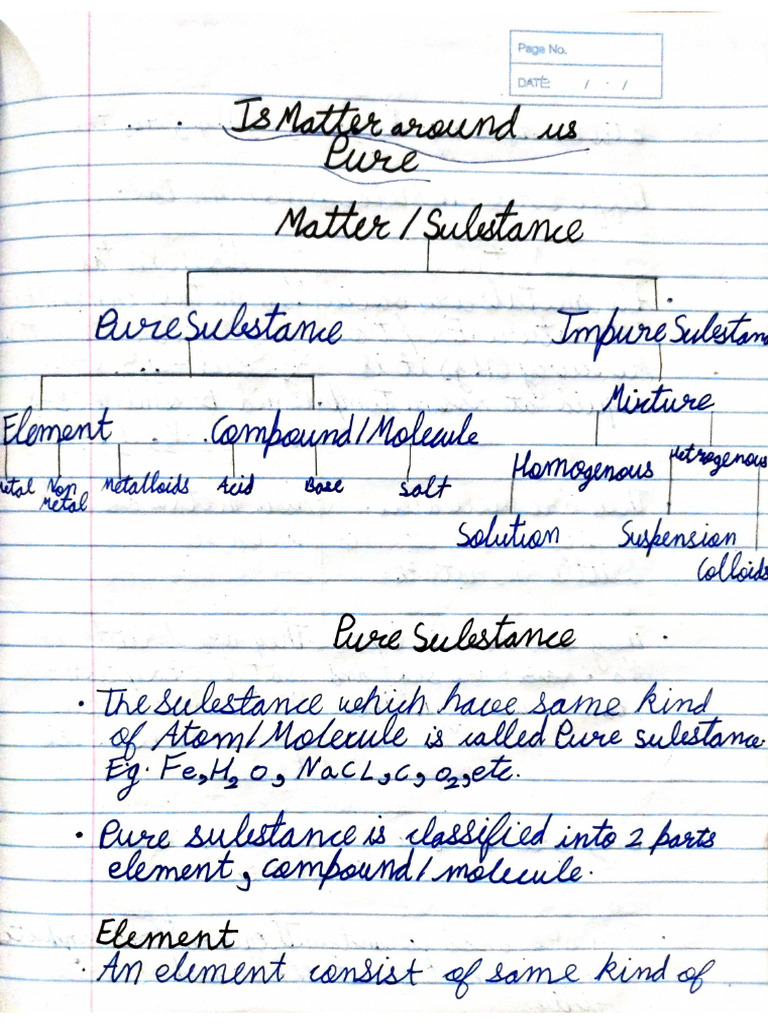 Page No.
DATE: / /
Is Matter around us
Pure
Matter / Substance
Pure Substance Impure Substan
Mixture
Element Compound/Molecule
Homogenous Hetrogenous
etal Non Metal Metalloids Acid Base Salt
Solution Suspension
Colloids
Pure Substance
• The substance which have same kind
of Atom/Molecule is called Pure substance.
Eg. Fe, H2O, NaCL, C, O2, etc.
• Pure substance is classified into 2 parts
element, compound/molecule.
Element
• An element consist of same kind of